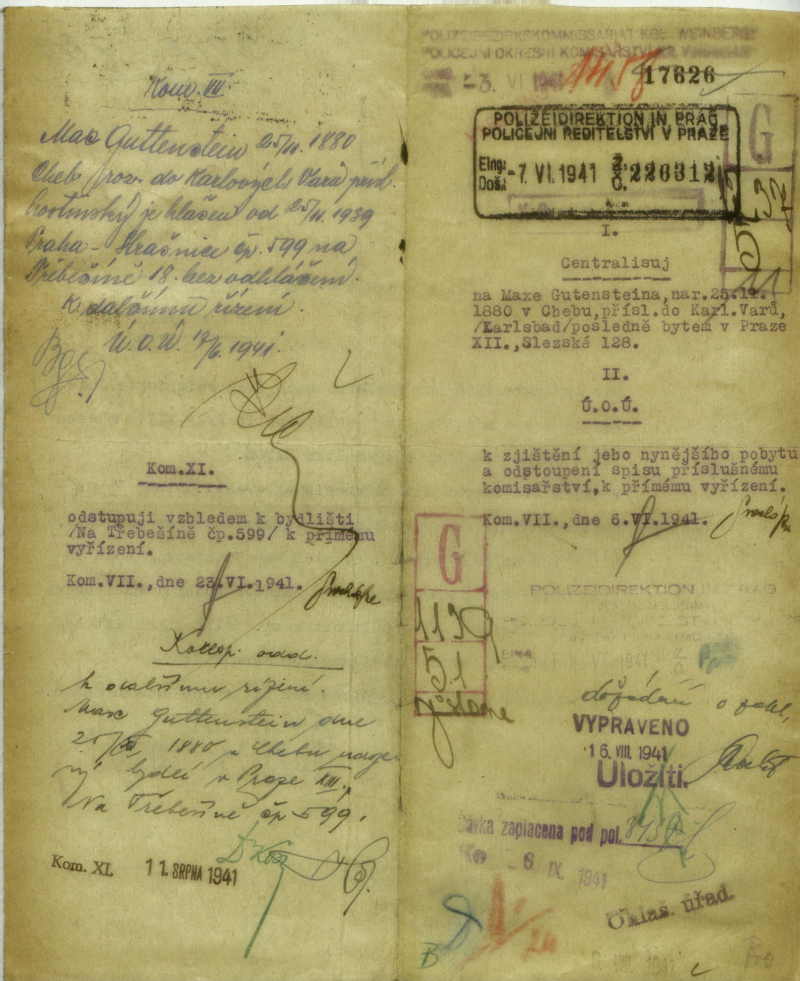 Kom. VII.
Max Guttenstein 25/11. 1880
Cheb roz. do Karlových Varů přísl.
je hlášen od 25/11. 1939
Praha - Strašnice čp. 599 na
Třebešíně 18. bez odhlášení.
K dalšímu řízení.
Ú.o.Ú. 17/6. 1941.
Kom.XI.
odstupuji vzhledem k bydlišti
/Na Třebešíně čp.599/ k přímému
vyřízení.
Kom.VII.,dne 23.VI.1941.
odd.
k dalšímu řízení.
Max Guttenstein dne
1880 v Chebu
bydlí v Praze XIII.,
Na Třebešíně čp 599.
Kom. XI. 11. SRPNA 1941
POLIZEIBEZIRKSKOMMISSARIAT KGL. WEINBERGE
POLICEJNÍ OKRESNÍ KOMISAŘSTVÍ
-3. VI 1941
17626
POLIZEIDIREKTION IN PRAG
POLICEJNÍ ŘEDITELSTVÍ V PRAZE
Eing.:
Doš.: -7. VI. 1941 Z. Č. 226312
G
I.
Centralisuj
na Maxe Gutensteina,nar.25.11.
1880 v Chebu,přísl.do Karl.Varů,
/Karlsbad/posledně bytem v Praze
XII.,Slezská 128.
II.
Ú.O.Ú.
k zjištění jeho nynějšího pobytu
a odstoupení spisu příslušnému
komisařství,k přímému vyřízení.
Kom.VII.,dne 6.VI.1941.
G
1139
51
POLIZEIDIREKTION IN PRAG
VI 1941
dožádání o
VYPRAVENO
16. VIII. 1941
Uložiti.
Dávka zaplacena pod pol. 8130
-6 IX. 1941
Ohlaš. úřad.